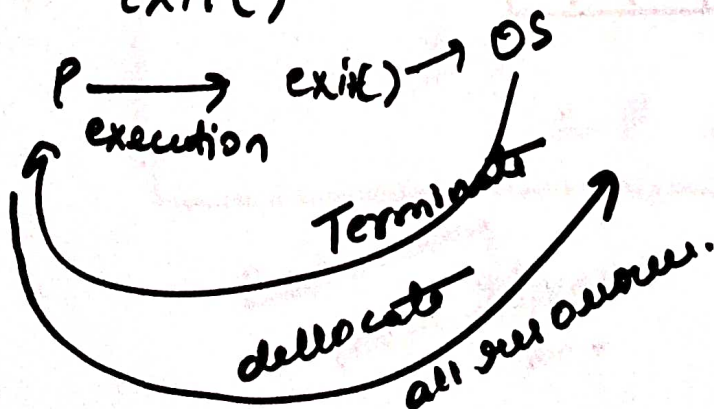 exit()
P → exit() → OS
execution
Terminate
dellocate
all resources.